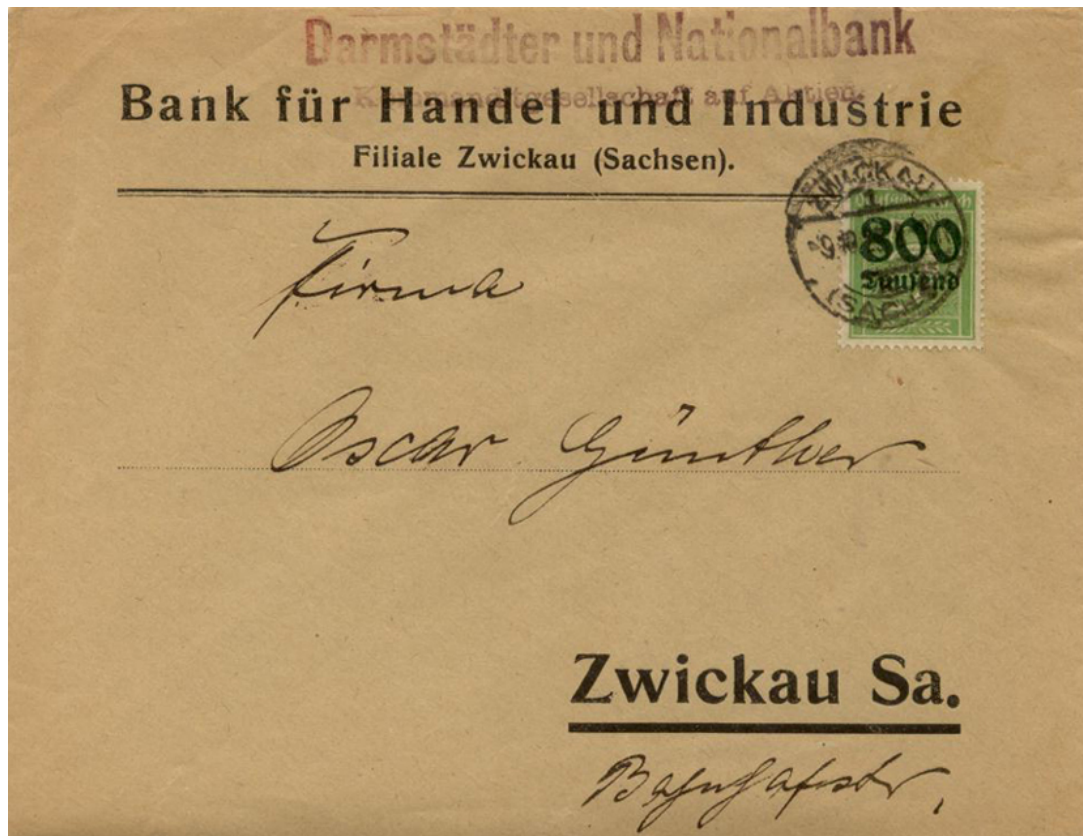 Darmstädter und Nationalbank
Kommanditgesellschaft auf Aktien
Bank für Handel und Industrie
Filiale Zwickau (Sachsen).
ZWICKAU
1
800
Tausend
(SACHS)
Firma
Oscar Günther
Zwickau Sa.
Bahnhofstr,